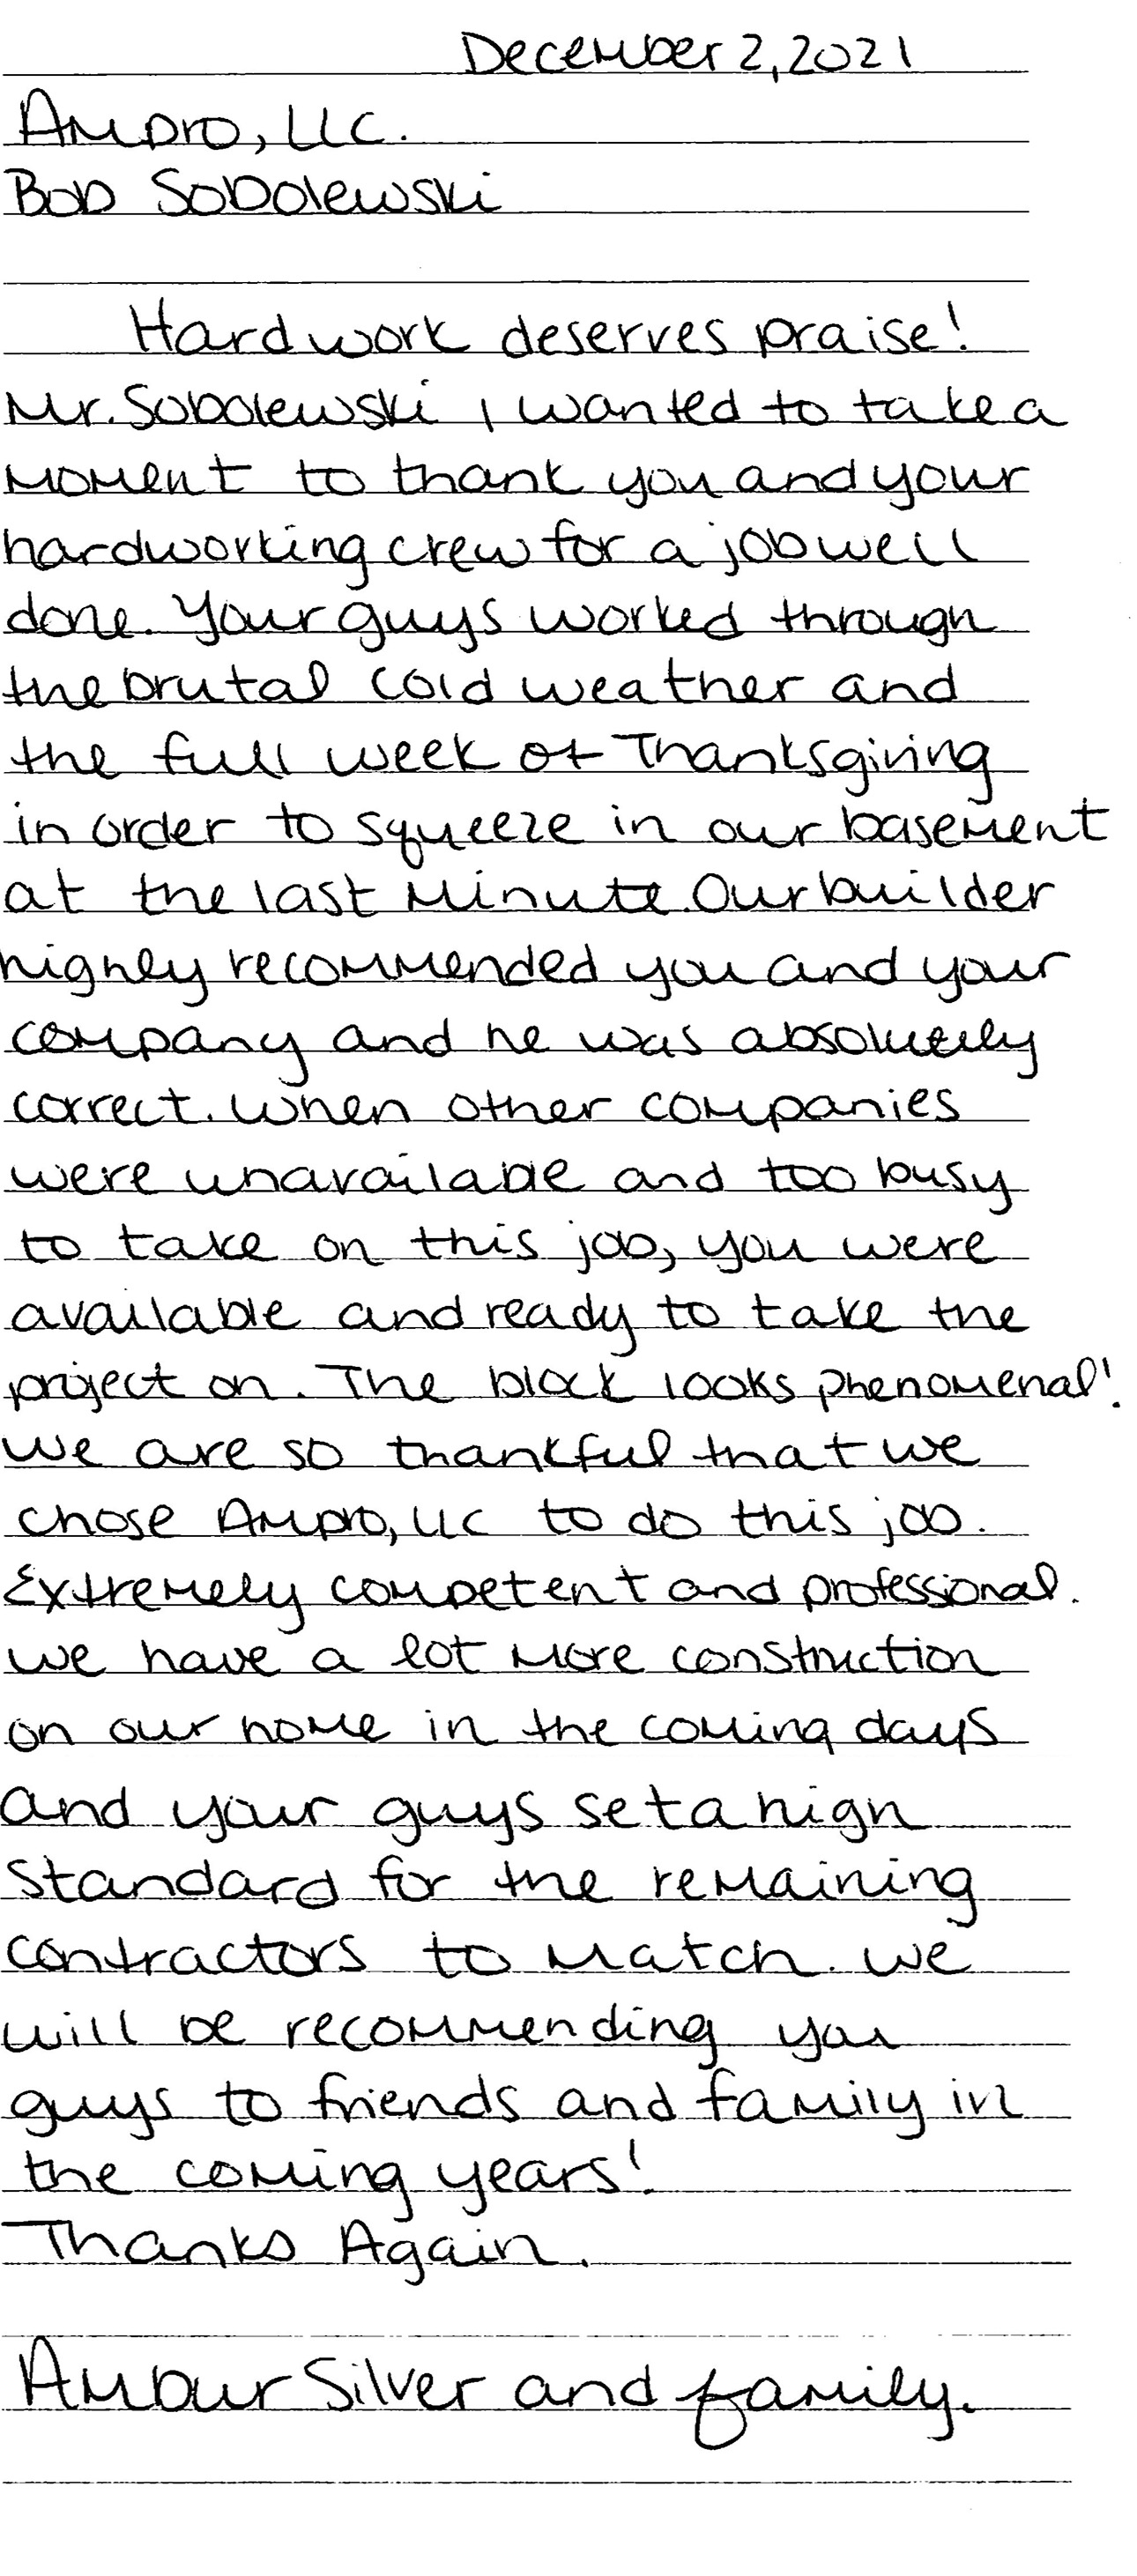 December 2, 2021
Ampro, LLC.
Bob Sobolewski
Hardwork deserves praise!
Mr. Sobolewski, I wanted to take a
moment to thank you and your
hardworking crew for a job well
done. Your guys worked through
the brutal cold weather and
the full week of Thanksgiving
in order to squeeze in our basement
at the last minute. Our builder
highly recommended you and your
company and he was absolutely
correct. When other companies
were unavailable and too busy
to take on this job, you were
available and ready to take the
project on. The block looks phenomenal!
We are so thankful that we
chose Ampro, LLC to do this job.
Extremely competent and professional.
We have a lot more construction
on our home in the coming days
and your guys set a high
standard for the remaining
contractors to match. We
will be recommending you
guys to friends and family in
the coming years!
Thanks Again.
Ambur Silver and family.